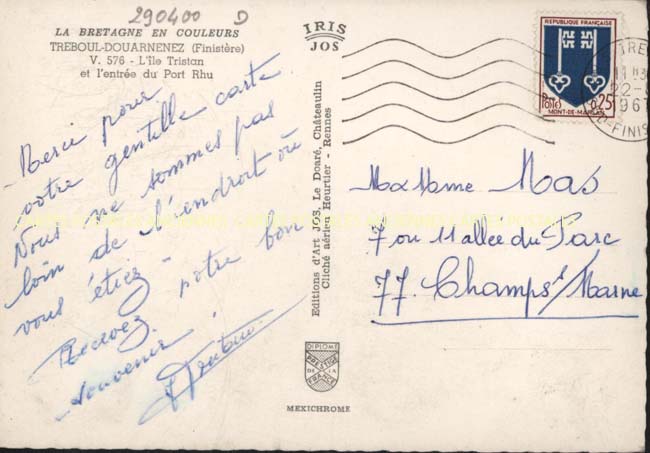 290400 D
LA BRETAGNE EN COULEURS
TREBOUL-DOUARNENEZ (Finistère)
V. 576 - L'Ile Tristan
et l'entrée du Port Rhu
Merci pour
votre gentille carte
Nous ne sommes pas
loin de l'endroit où
vous étiez -
Recevez notre bon
souvenir !
IRIS
JOS
Editions d'Art JOS, Le Doaré, Châteaulin
Cliché aérien Heurtier - Rennes
DIPLOME
PRESTIGE
DE LA
FRANCE
MEXICHROME
REPUBLIQUE FRANÇAISE
Postes
0,25
MONT-DE-MARSAN
TRE
22-
196
FINIS
Mas
7 ou 11 allee du Parc
77. Champs s/ Marne